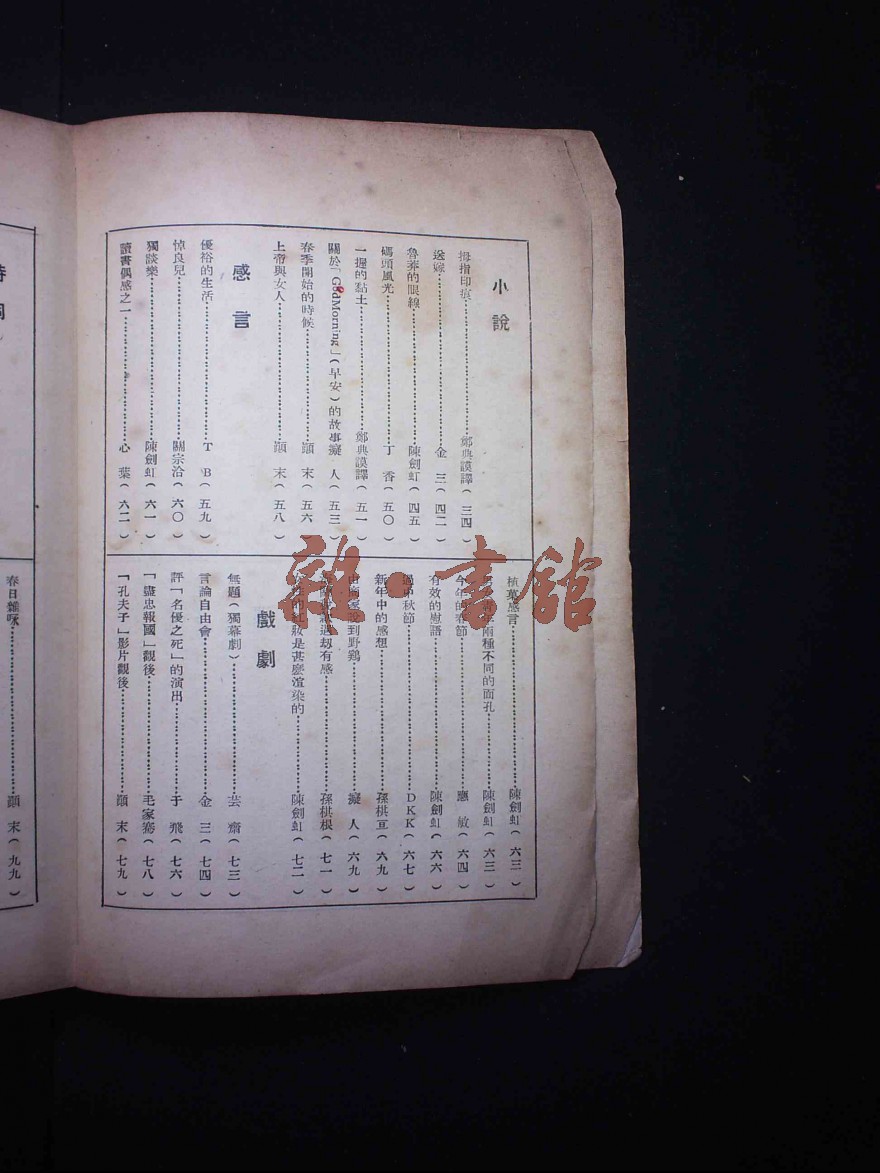 小說
拇指印痕 鄭典謨譯(三四)
送嫁 金三(四二)
魯莽的眼線 陳劍虹(四五)
碼頭風光 丁香(五〇)
一握的黏土 鄭典謨譯(五一)
關於「God Morning」(早安)的故事 癡人(五三)
春季開始的時候 顓末(五六)
上帝與女人 顓末(五八)
感言
優裕的生活 T B(五九)
悼良兒 關宗洽(六〇)
獨談樂 陳劍虹(六一)
讀書偶感之一 心葉(六二)
植菓感言 陳劍虹(六三)
兩種不同的面孔 陳劍虹(六三)
今年的春節 應敏(六四)
有效的慰語 陳劍虹(六六)
過中秋節 DKK(六七)
新年中的感想 孫棋亘(六九)
說到野鷄 癡人(六九)
遇刼有感 孫棋根(七一)
的紅妝是甚麼渲染的 陳劍虹(七二)
戲劇
無題(獨幕劇) 芸齋(七三)
言論自由會 金三(七四)
評「名優之死」的演出 于飛(七六)
「盡忠報國」觀後 毛家騫(七八)
「孔夫子」影片觀後 顓末(七九)
春日雜咏 顓末(九九)
雜·書館